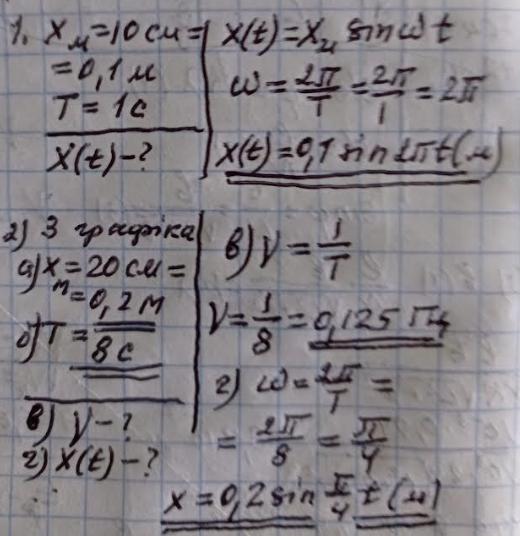 1. Xм=10 см=
=0,1 м
T=1с
X(t)-?
X(t)=Xм sin ω t
ω=2π/T=2π/1=2π
X(t)=0,1 sin 2π t (м)
2) З графіка
а) Xм=20 см=
=0,2 м
б) T=
8 с
в) ν-?
г) X(t)-?
в) ν=1/T
ν=1/8=0,125 Гц
г) ω=2π/T=
=2π/8=π/4
x=0,2 sin π/4 t (м)